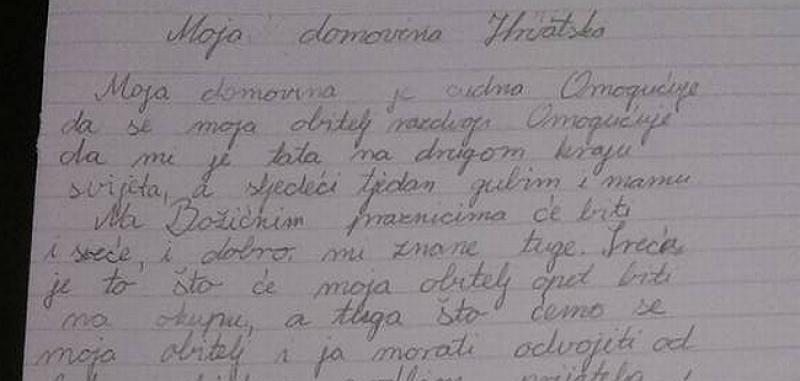 Moja domovina Hrvatska
Moja domovina je čudna Omogućuje
da se moja obitelj razdvoji Omogućuje
da mi je tata na drugom kraju
svijeta, a sljedeći tjedan gubim i mamu
Na Božićnim praznicima će biti
i sreće, i dobro mi znane tuge. Sreća
je to što će moja obitelj opet biti
na okupu, a tuga što ćemo se
moja obitelj i ja morati odvojiti od